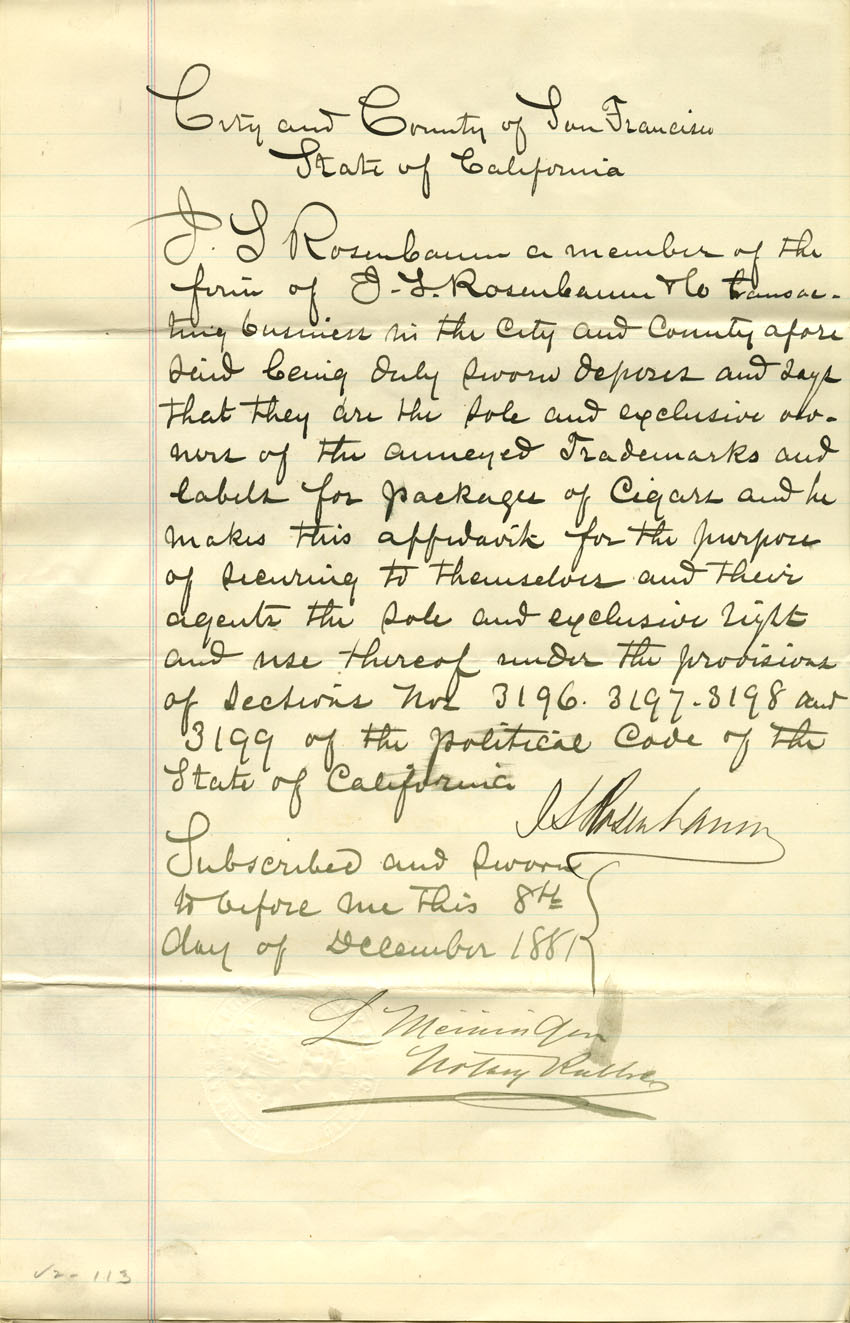 City and County of San Francisco
State of California
J. S Rosenbaum a member of the
firm of J. S. Rosenbaum & Co transac-
ting business in the City and County afore
said being duly sworn deposes and says
that they are the sole and exclusive ow-
ners of the annexed Trademarks and
labels for packages of Cigars and he
makes this affidavit for the purpose
of securing to themselves and their
agents the sole and exclusive right
and use thereof under the provisions
of Sections Nos 3196. 3197-3198 and
3199 of the political Code of the
State of California
J S Rosenbaum
Subscribed and sworn
to before me this 8th
day of December 1881
L Meininger
Notary Public
V2-113